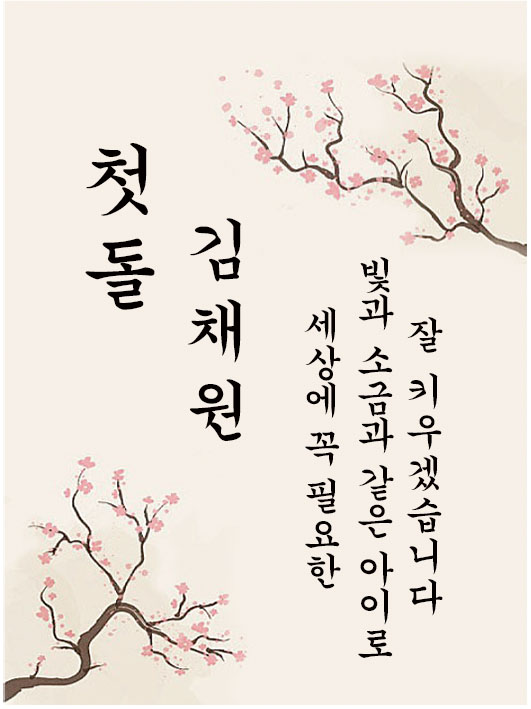 첫돌
김채원
세상에 꼭 필요한
빛과 소금과 같은 아이로
잘 키우겠습니다